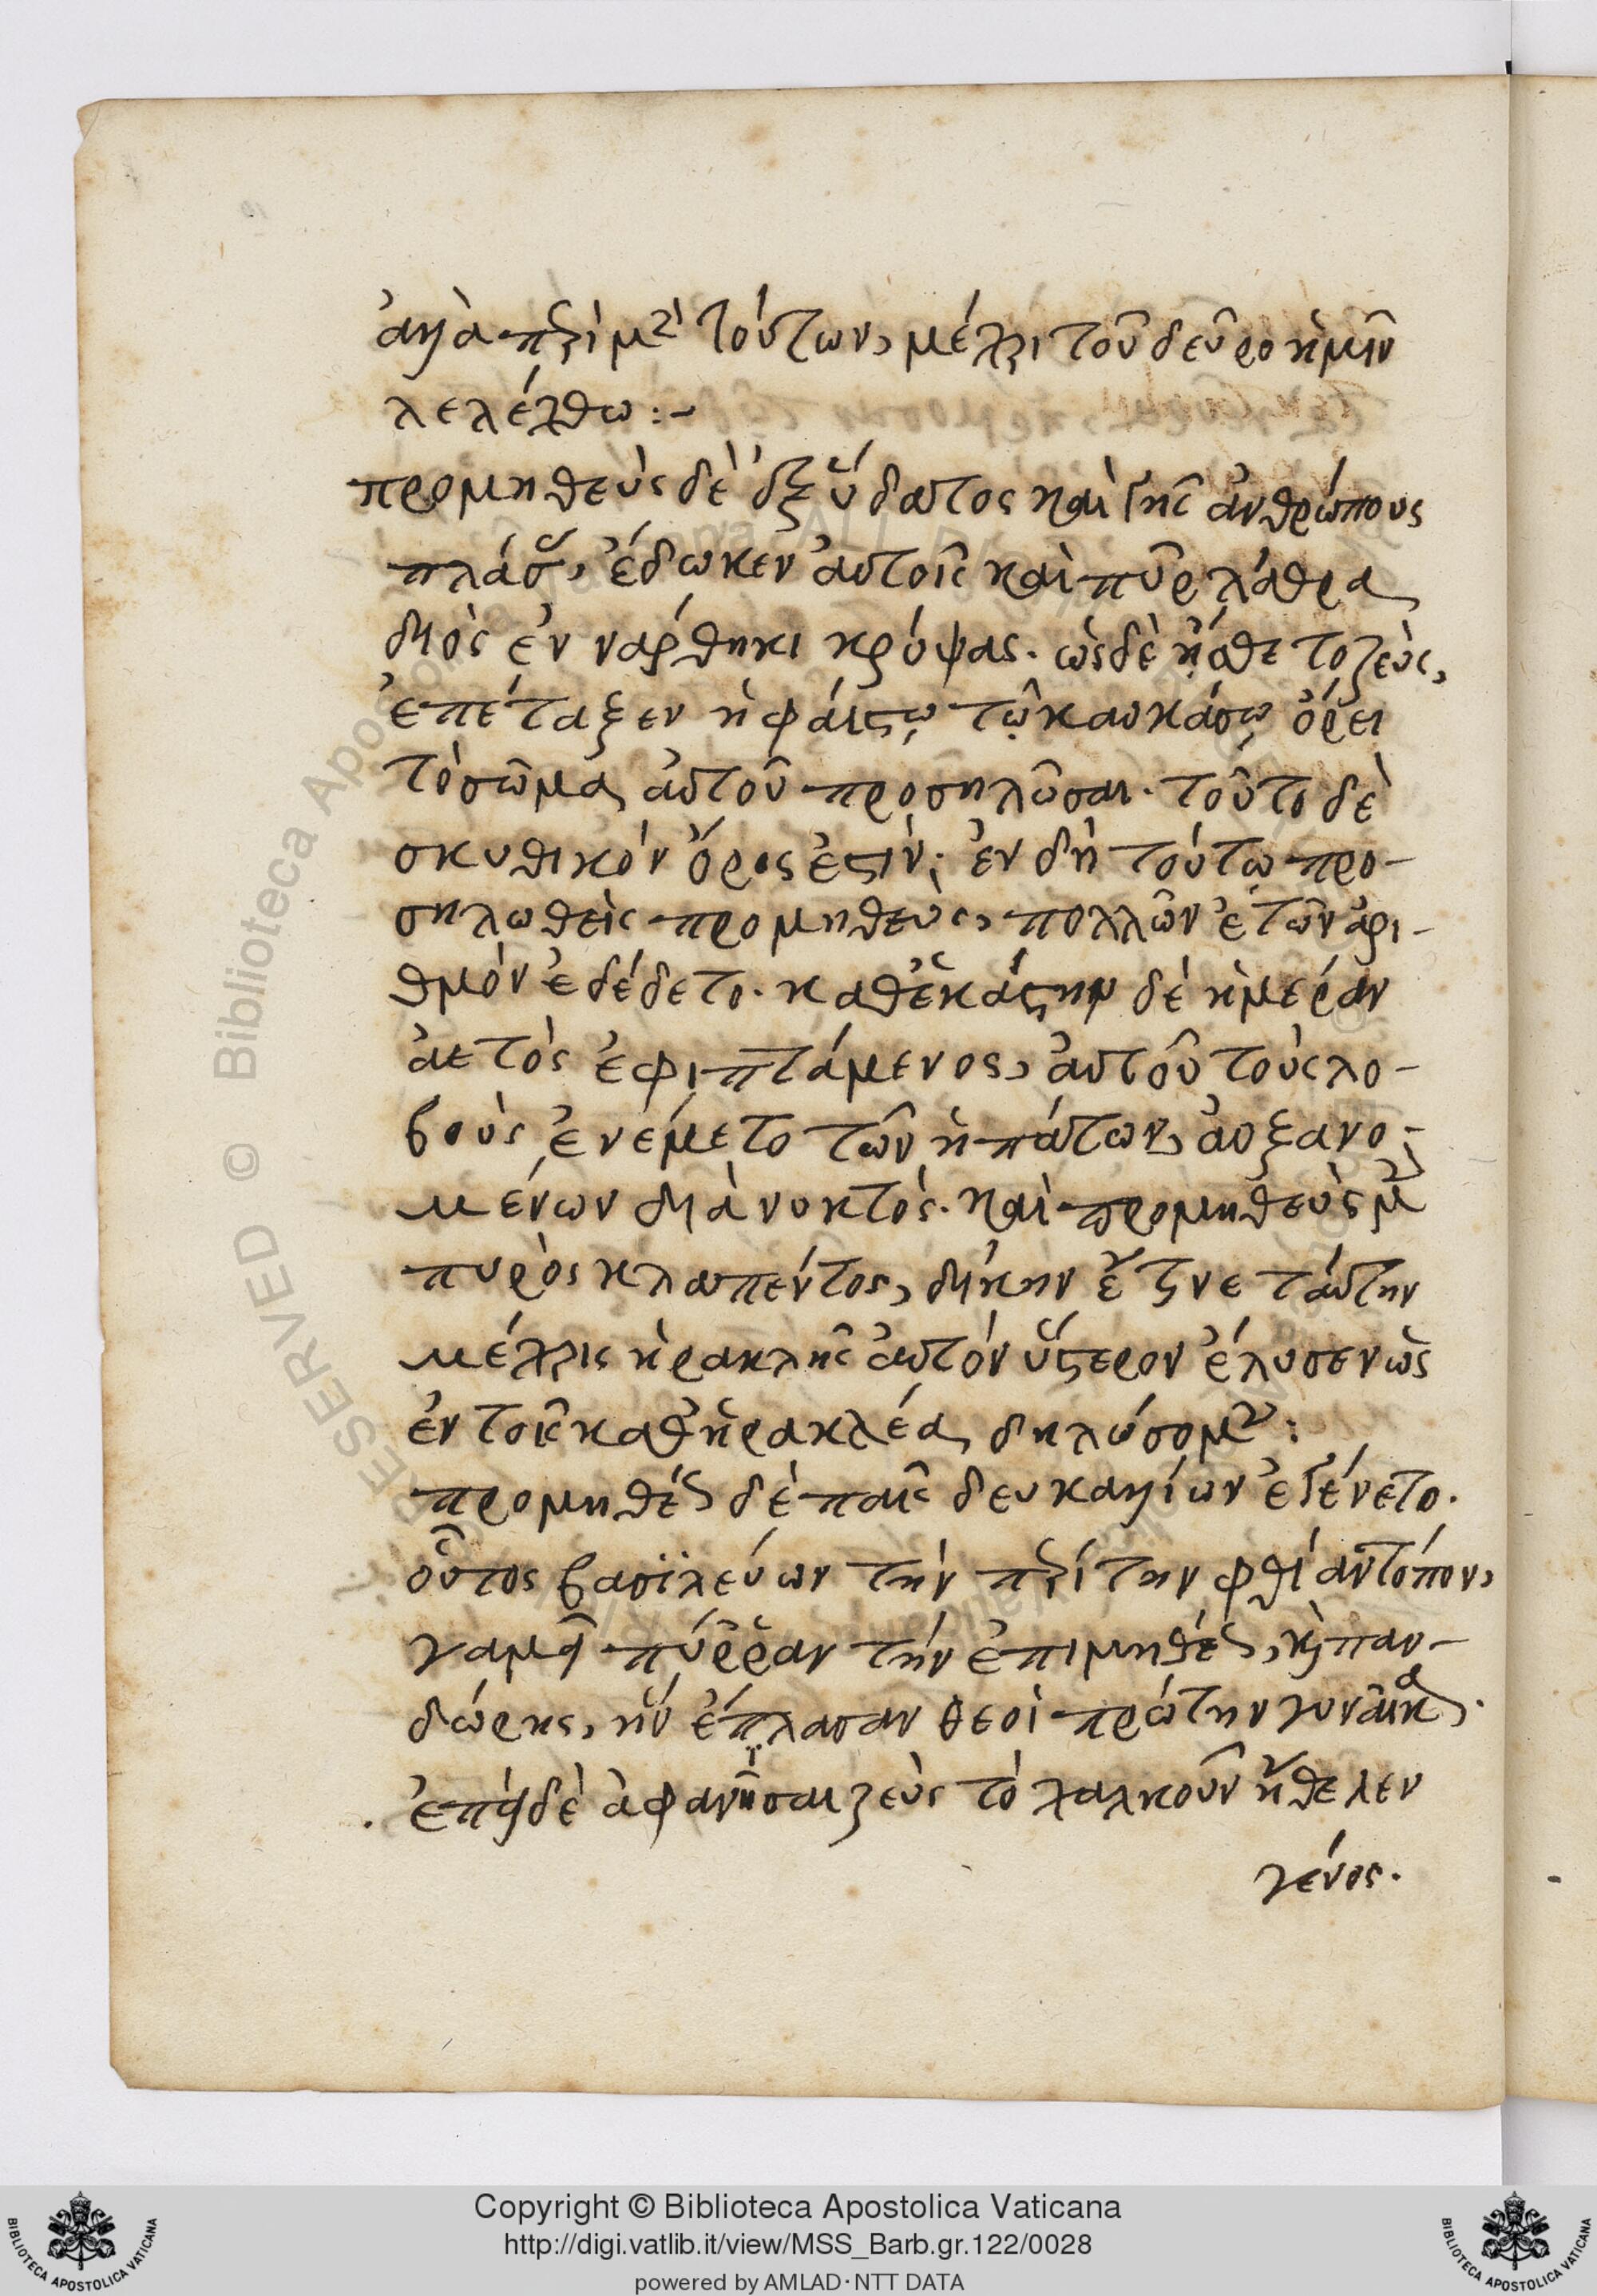 ἀλλὰ περὶ μὲν τούτων, μέχρι τοῦ δεῦρο ἡμῖν
λελέχθω:~
προμηθεὺς δὲ ἐξ ὕδατος καὶ γῆς ἀνθρώπους
πλάσας, ἔδωκεν αὐτοῖς καὶ πῦρ λάθρα
διὸς ἐν νάρθηκι κρύψας. ὡς δὲ ἤσθετο ζεὺς,
ἐπέταξεν ἡφαίστῳ τῷ καυκάσῳ ὄρει
τὸ σῶμα αὐτοῦ προσηλῶσαι. τοῦτο δὲ
σκυθικὸν ὄρος ἐστίν· ἐν δὴ τούτῳ προ-
σηλωθεὶς προμηθεὺς, πολλῶν ἐτῶν ἀρι-
θμὸν ἐδέδετο. καθ' ἑκάστην δὲ ἡμέραν
ἀετὸς ἐφιπτάμενος, αὐτοῦ τοὺς λο-
βοὺς ἐνέμετο τῶν ἡπάτων, αὐξανο-
μένων διὰ νυκτὸς. καὶ προμηθεὺς μὲν
πυρὸς κλαπέντος, δίκην ἔτινε ταύτην
μέχρις ἡρακλῆς αὐτὸν ὕστερον ἔλυσεν ὡς
ἐν τοῖς καθ' ἡρακλέα δηλώσομεν:
προμηθέως δὲ παῖς δευκαλίων ἐγένετο.
οὗτος βασιλεύων τὴν περὶ την φθίαν τόπον,
γαμεῖ πύρραν τὴν ἐπιμηθέως, καὶ παν-
δώρης, ἣν ἔπλασαν θεοὶ πρώτην γυναῖκα.
ἐπεὶ δὲ ἀφανῆσαι ζεὺς τὸ χαλκοῦν ἤθελεν
γένος.
Copyright © Biblioteca Apostolica Vaticana
http://digi.vatlib.it/view/MSS_Barb.gr.122/0028
powered by AMLAD·NTT DATA
BIBLIOTECA APOSTOLICA VATICANA
BIBLIOTECA APOSTOLICA VATICANA